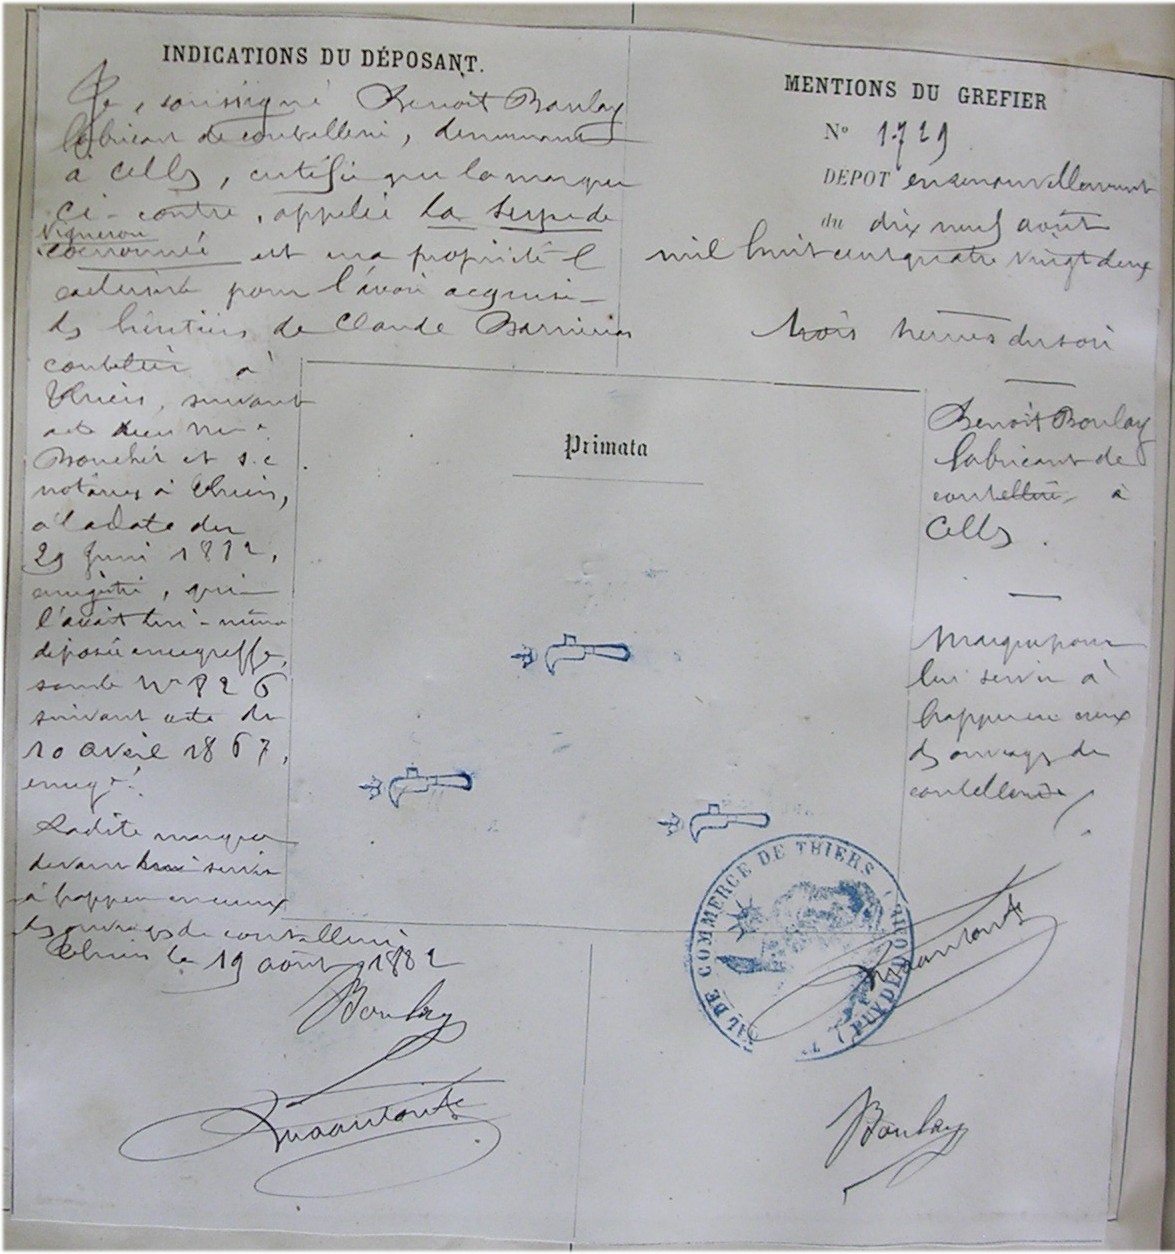 INDICATIONS DU DÉPOSANT.
Je, soussigné Benoît Boulay
fabricant de coutellerie, demeurant
à Celles, certifie que la marque
ci-contre, appelée la serpe de
vigneron
couronnée est ma propriété
exclusive pour l'avoir acquise
des héritiers de Claude
coutelier à
Thiers, suivant
acte reçu Me
Boucher et s.c
notaires à Thiers,
à la date du
29 Juin 1872,
enregistré, qui
l'avait lui-même
déposée au greffe,
sous le No 826
suivant acte du
10 avril 1867,
enregé.
Ladite marque
devant servir
à frapper en creux
des ouvrages de coutellerie
Thiers le 19 août 1882
Boulay
MENTIONS DU GREFIER
No 1729
DÉPOT en renouvellement
du dix neuf août
mil huit cent quatre vingt deux
trois heures du soir
Primata
Benoît Boulay
fabricant de
coutellerie à
Celles.
Marque pour
lui servir à
frapper en creux
des ouvrages de
coutellerie
AL DE COMMERCE DE THIERS (PUY DE DOME)
Boulay